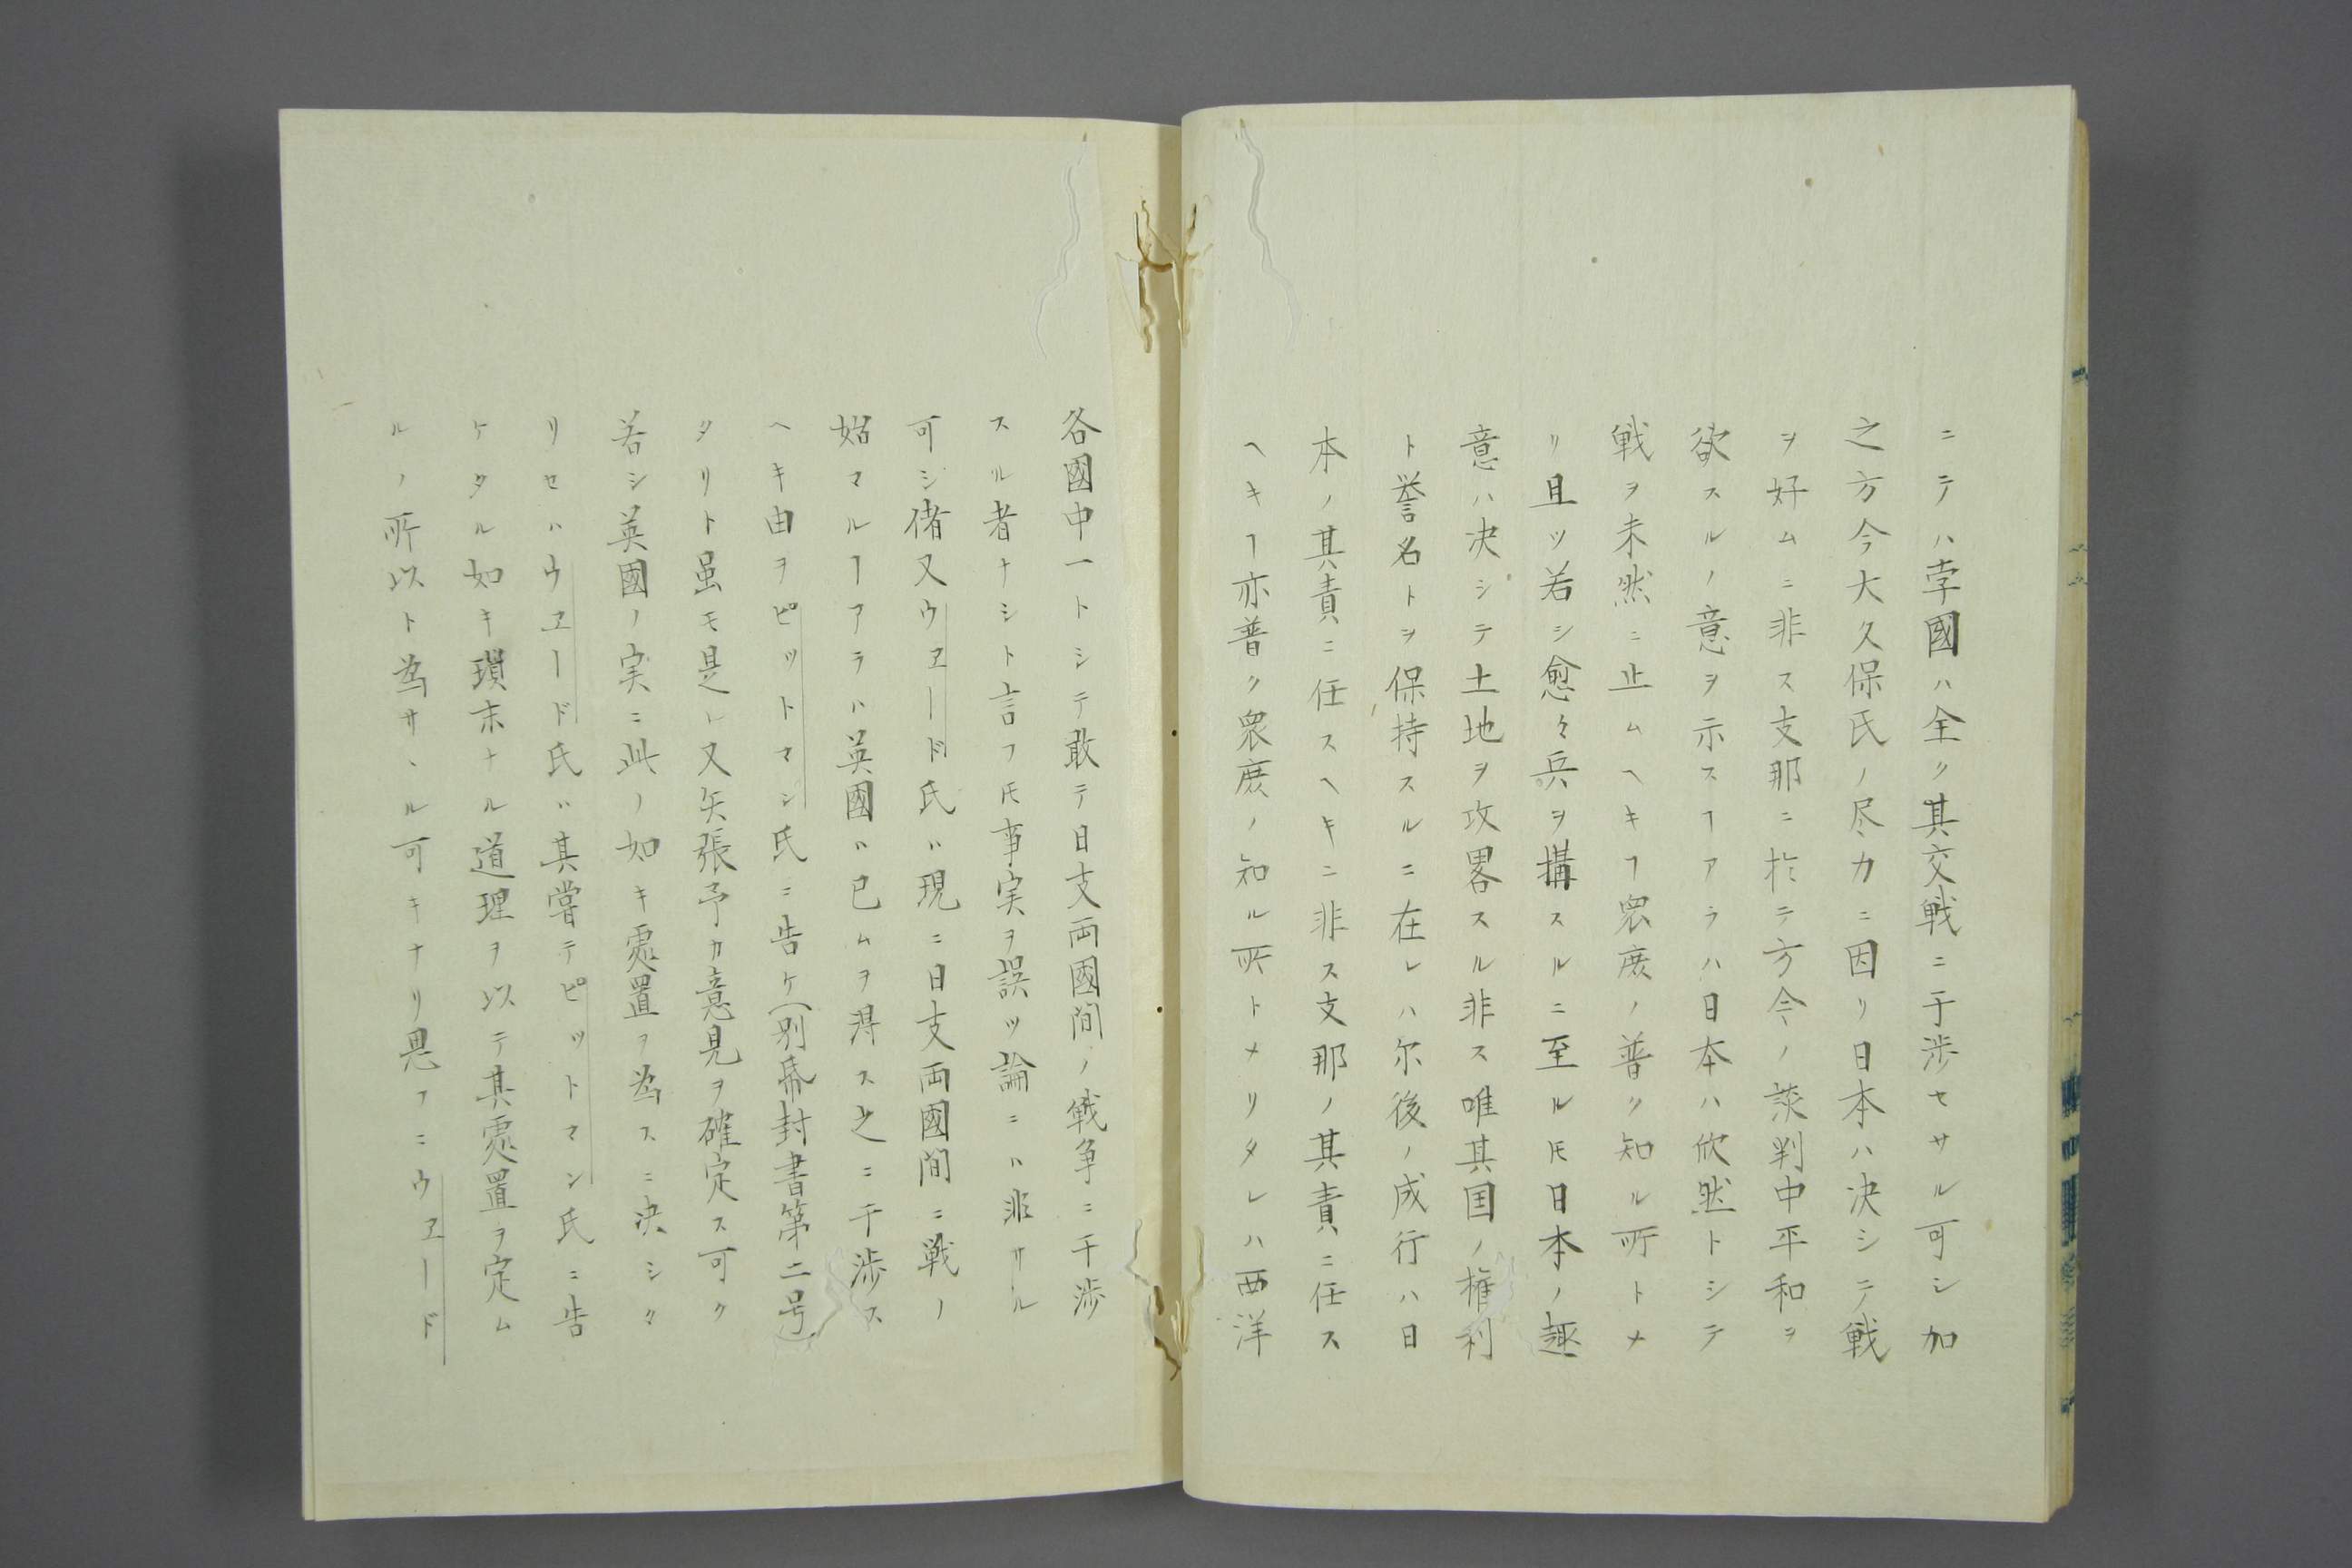 ニテハ孛國ハ全ク其交戦ニ干渉セサル可シ加
之方今大久保氏ノ尽力ニ因リ日本ハ決シテ戦
ヲ好ムニ非ス支那ニ於テ方今ノ談判中平和ヲ
欲スルノ意ヲ示スヿアラハ日本ハ欣然トシテ
戦ヲ未然ニ止ムヘキヿ衆庶ノ普ク知ル所トメ
リ且ツ若シ愈々兵ヲ搆スルニ至ルㇳモ日本ノ趣
意ハ決シテ土地ヲ攻畧スル非ス唯其国ノ権利
ト誉名トヲ保持スルニ在レハ尓後ノ成行ハ日
本ノ其責ニ任スヘキニ非ス支那ノ其責ニ任ス
ヘキヿ亦普ク衆庶ノ知ル所トメリタレハ西洋
各國中一トシテ敢テ日支両國間ノ戦争ニ干渉
スル者ナシト言フㇳモ事実ヲ誤ツ論ニハ非サル
可シ偖又ウヱード氏ハ現ニ日支両國間ニ戦ノ
始マルヿアラハ英國ハ已ムヲ得ス之ニ干渉ス
ヘキ由ヲピットマン氏ニ告ケ(別帋封書第二号)
タリト虽モ是レ又矢張予カ意見ヲ確定ス可ク
若シ英國ノ実ニ此ノ如キ処置ヲ為スニ決シク
リセハウヱード氏ハ其嘗テピットマン氏ニ告
ケタル如キ瑣末ナル道理ヲ以テ其処置ヲ定ム
ルノ所以ト為サヽル可キナリ思フニウヱード